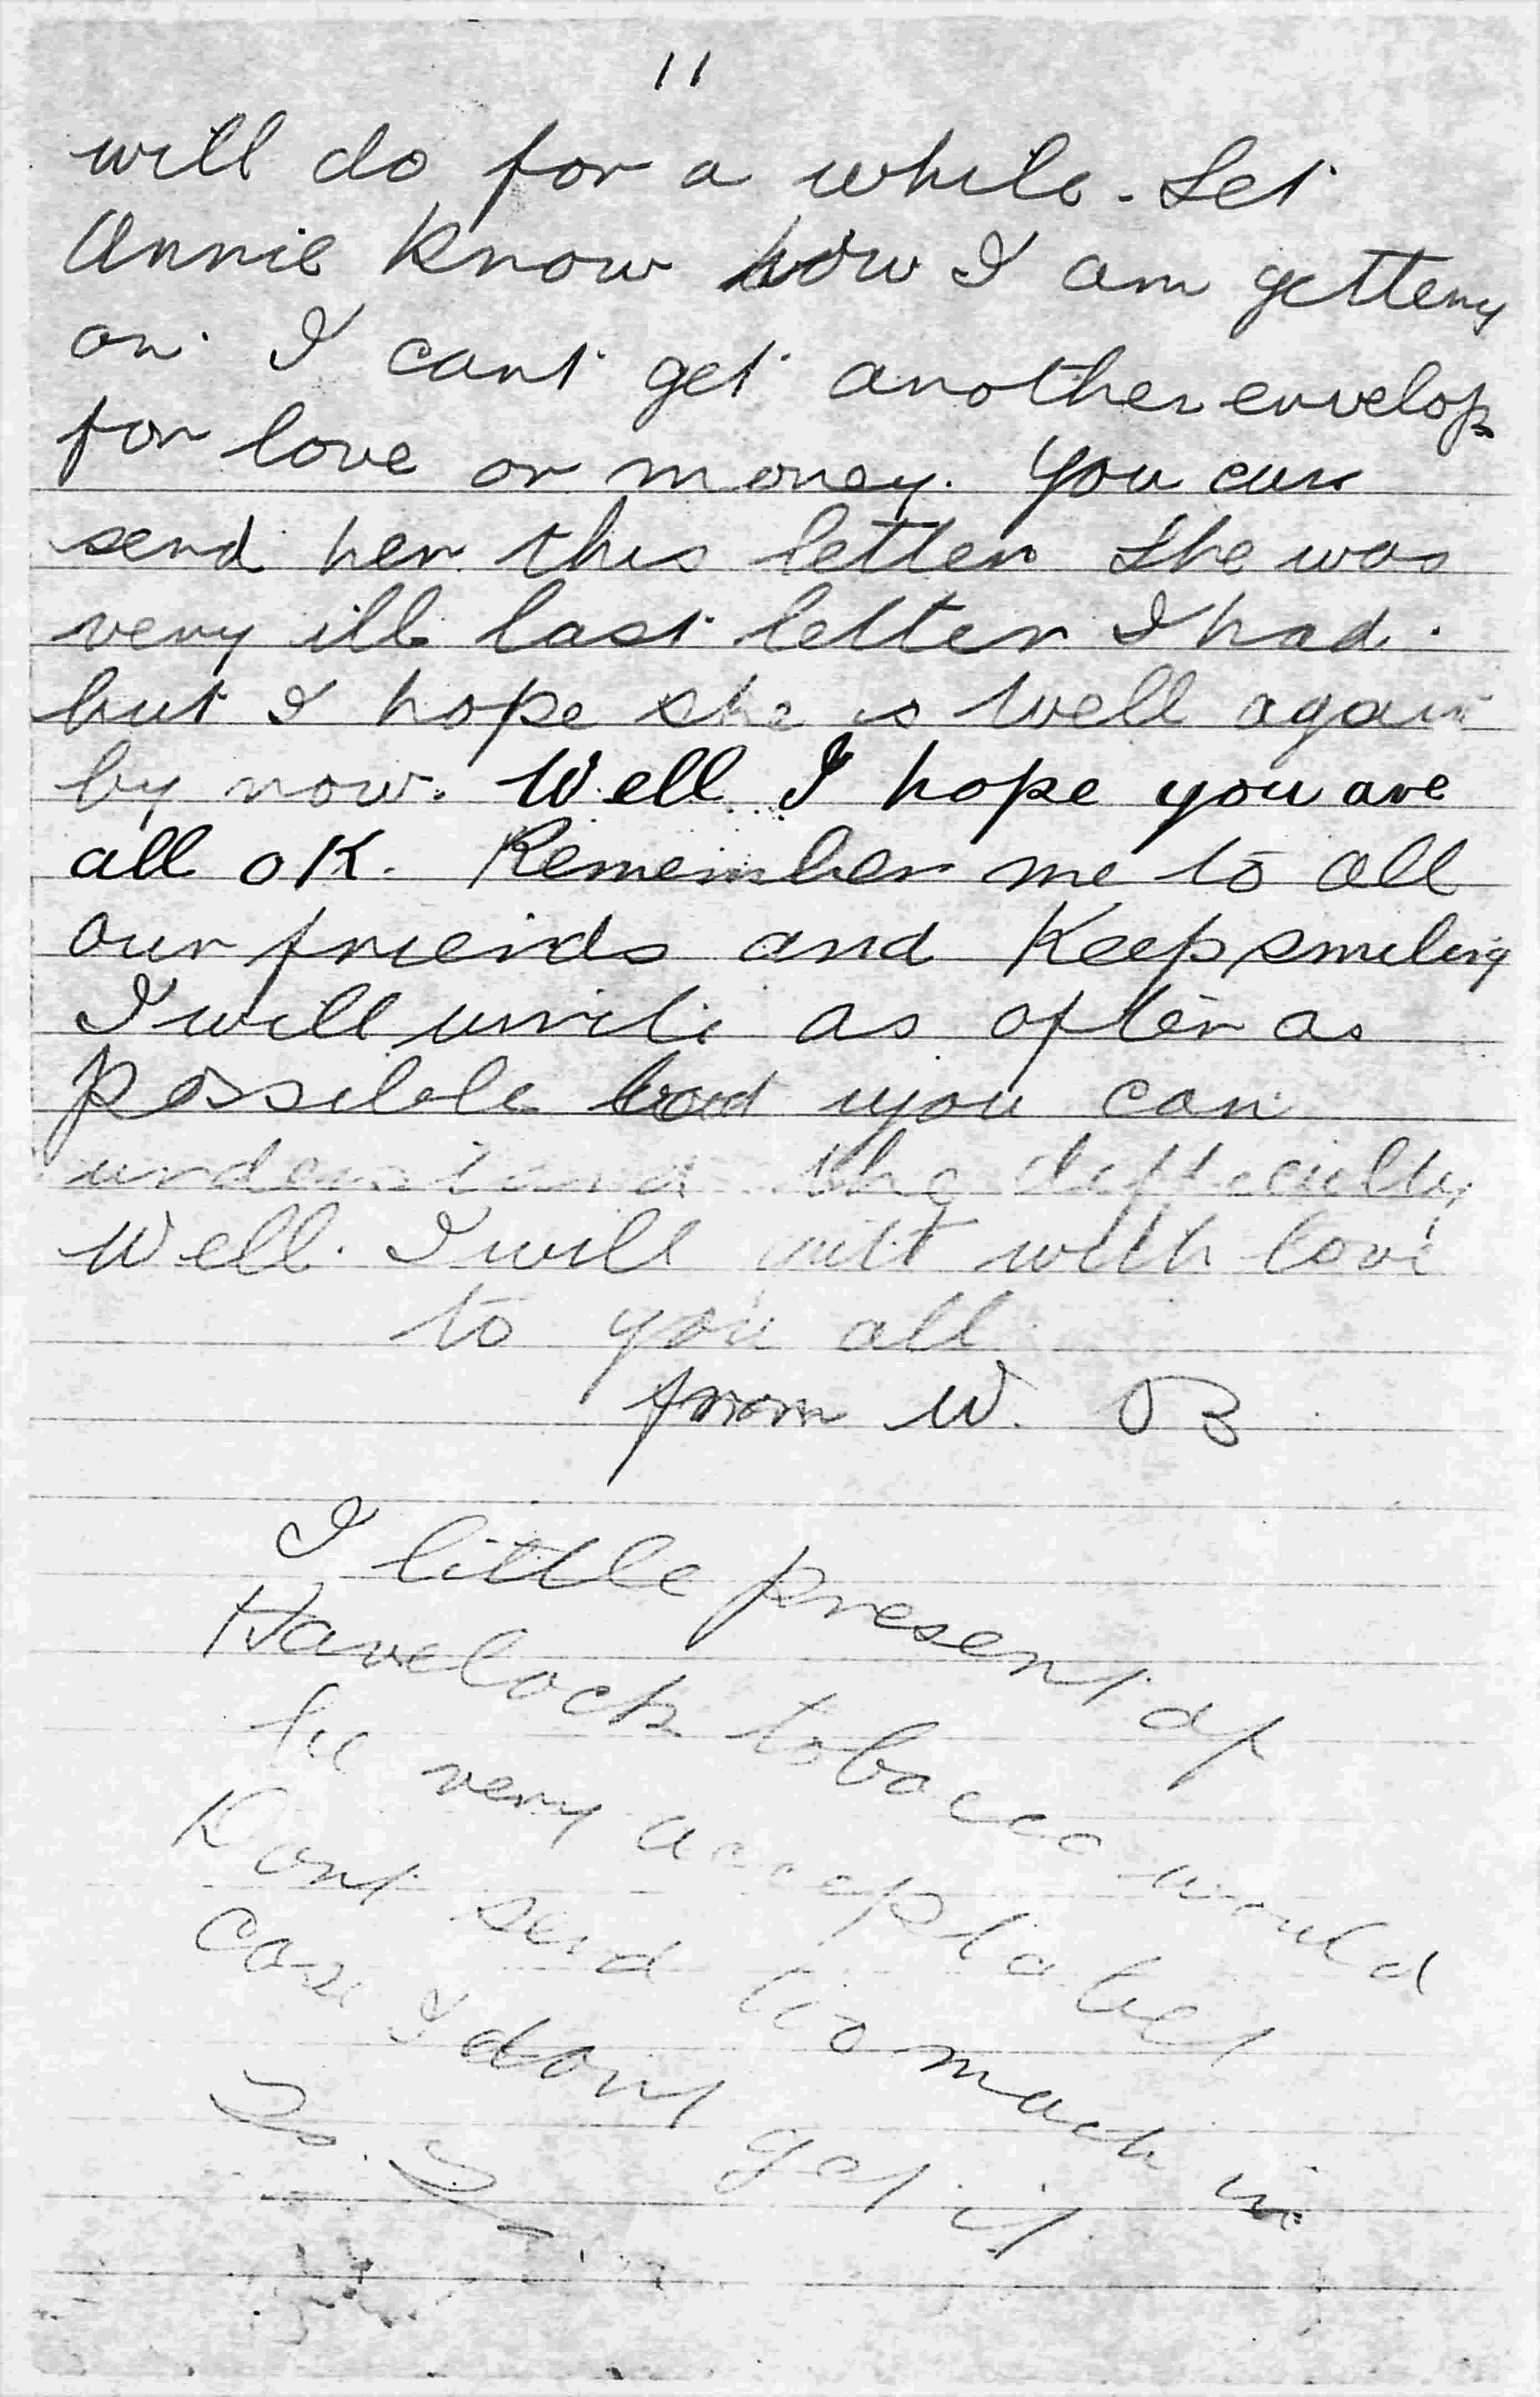 11
will do for a while. Let
Annie know how I am getteny
on. I cant get another envelop
for love or money. You can
send her this letter She was
very ill last letter I had.
but I hope she is well again
by now. Well I hope you are
all OK. Remember me to all
our friends and Keep smiling
I will write as often as
possible but you can
understand the difficulty
Well. I will quit with love
to you all
from W. B
I little present of
Havelock tobacco would
be very acceptabel
Dont send to much in
case I dont get it